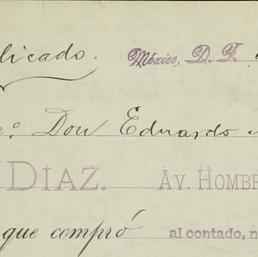 México, D. F.
Don Eduardo
DIAZ. AV. HOMBR
que compró al contado, n